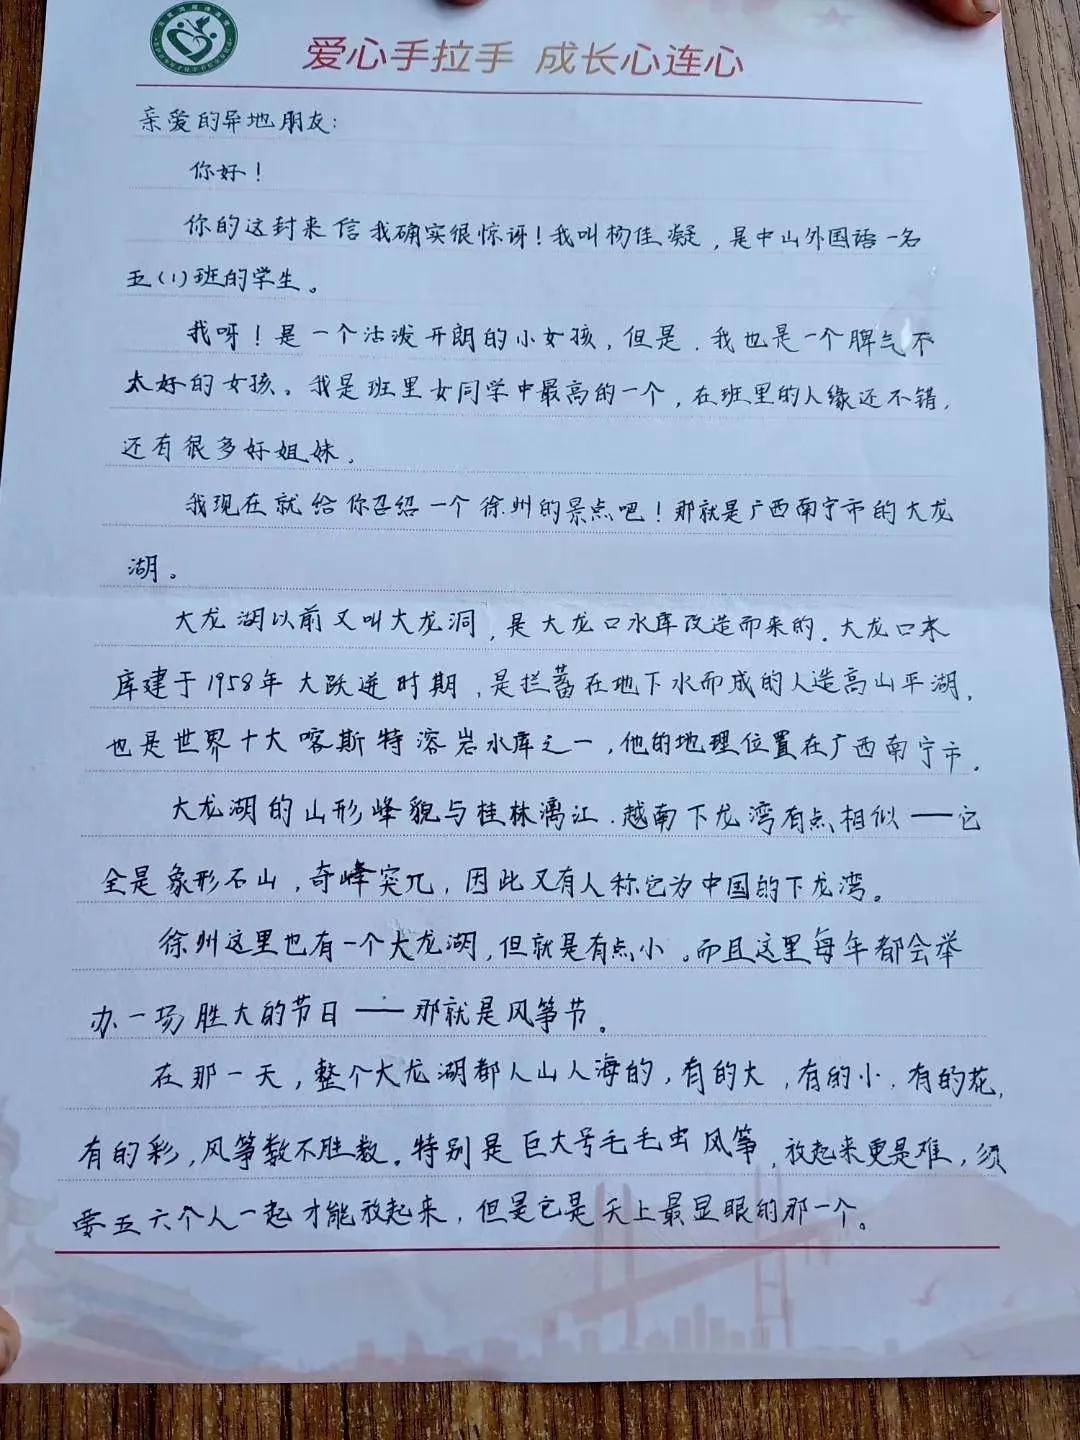 爱心手拉手 成长心连心
亲爱的异地朋友：
你好！
你的这封来信我确实很惊讶！我叫杨佳凝，是中山外国语一名
五(1)班的学生。
我呀！是一个活泼开朗的小女孩，但是，我也是一个脾气不
太好的女孩。我是班里女同学中最高的一个，在班里的人缘还不错，
还有很多好姐妹。
我现在就给你召绍一个徐州的景点吧！那就是广西南宁市的大龙
湖。
大龙湖以前又叫大龙洞，是大龙口水库改造而来的．大龙口本
库建于1958年大跃进时期，是拦蓄在地下水而成的人造高山平湖，
也是世界十大喀斯特溶岩水库之一，他的地理位置在广西南宁市．
大龙湖的山形峰貌与桂林漓江．越南下龙湾有点相似——它
全是象形石山，奇峰突兀，因此又有人称它为中国的下龙湾。
徐州这里也有一个大龙湖，但就是有点小。而且这里每年都会举
办一场胜大的节日——那就是风筝节。
在那一天，整个大龙湖都人山人海的，有的大，有的小．有的花，
有的彩，风筝数不胜数。特别是巨大号毛毛虫风筝，放起来更是难，须
要五六个人一起才能放起来，但是它是天上最显眼的那一个。